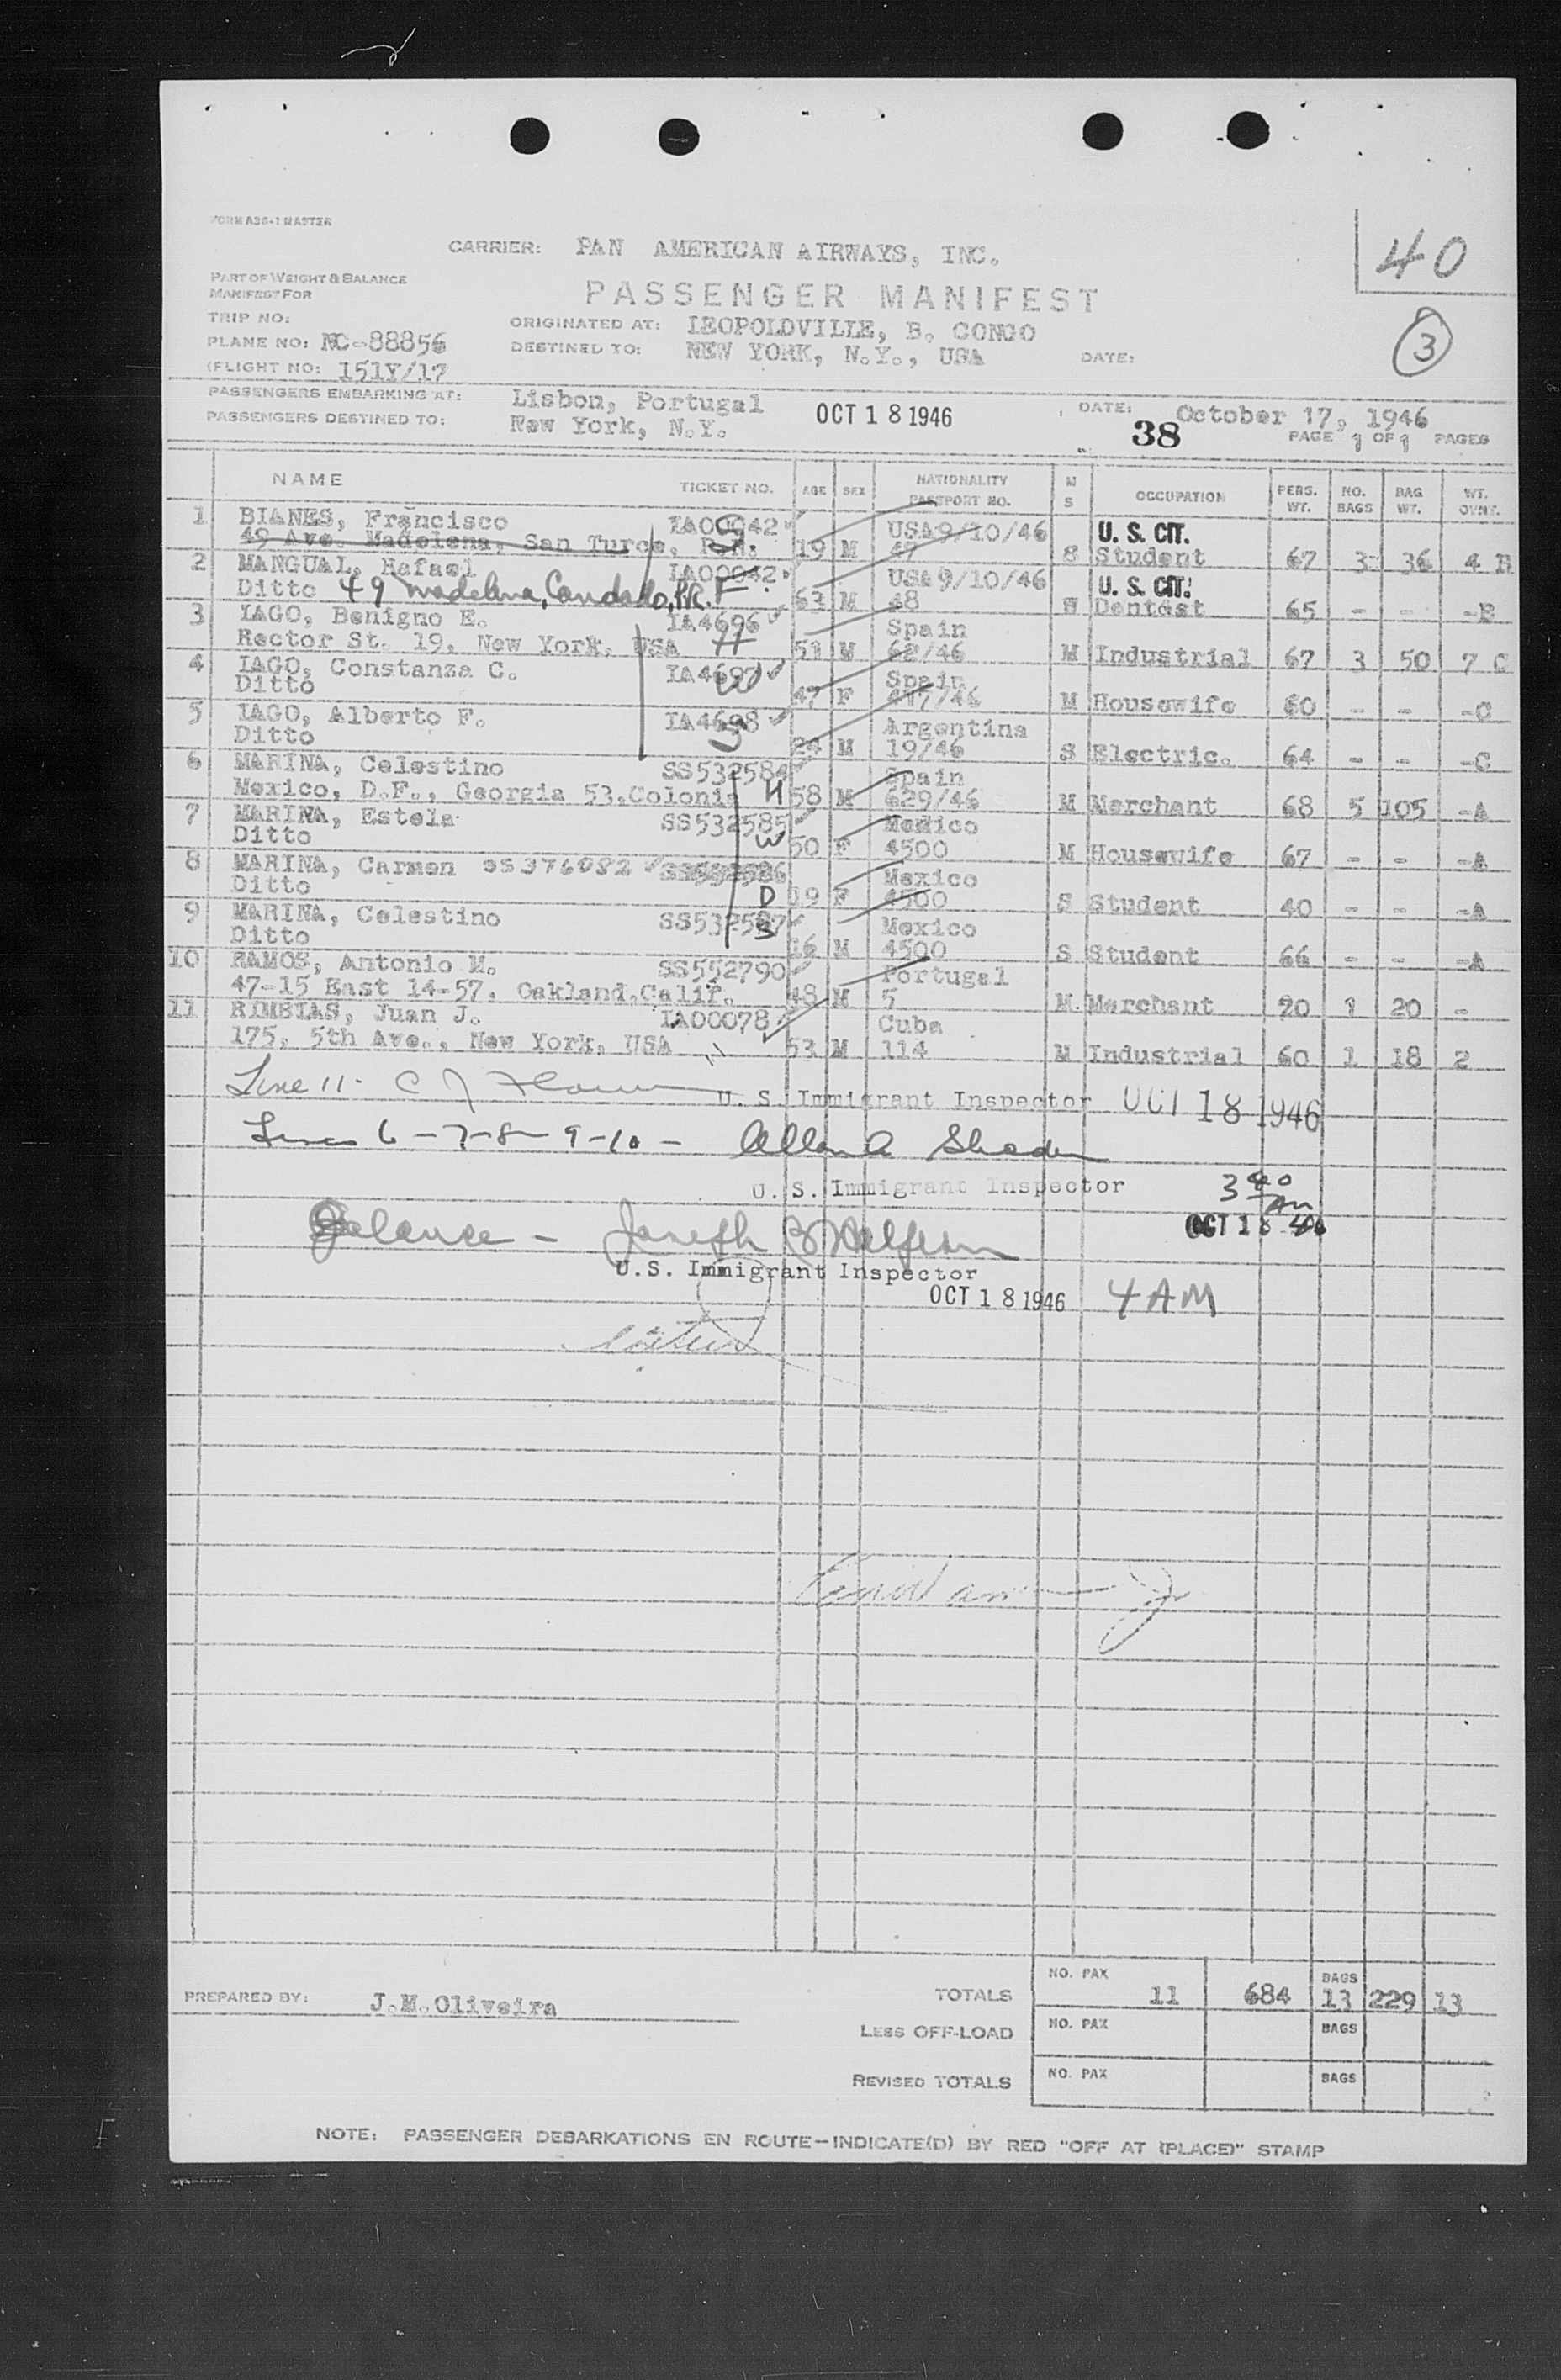 FORM A36-1 MASTER
40
CARRIER: PAN AMERICAN AIRWAYS, INC.
PART OF WEIGHT & BALANCE
MANIFEST FOR
PASSENGER MANIFEST
TRIP NO:
ORIGINATED AT: LEOPOLDVILLE, B. CONGO
3
PLANE NO: NC-88856
DESTINED TO: NEW YORK, N.Y., USA DATE:
(FLIGHT NO: 151Y/17
PASSENGERS EMBARKING AT: Lisbon, Portugal
OCT 18 1946
DATE: October 17, 1946
PASSENGERS DESTINED TO: New York, N.Y.
38 PAGE 1 OF 1 PAGES
NAME TICKET NO. AGE SEX NATIONALITY PASSPORT NO. M S OCCUPATION PERS. WT. NO. BAGS BAG WT. WT. OVNT.
1 BIANES, Francisco IA00042 USA9/10/46 U. S. CIT.
49 Ave. Madelena, San Turce, P.R. S 19 M 47 S Student 67 3 36 4 B
2 MANGUAL, Rafael IA00042 USA9/10/46 U. S. CIT.
Ditto 49 Madelina, Condado, P.R. F 63 M 48 W Dentist 65 - - -B
3 IAGO, Benigno E. IA4696 Spain
Rector St. 19, New York, USA H 51 M 62/46 M Industrial 67 3 50 7 C
4 IAGO, Constanza C. IA4697 Spain
Ditto W 47 F 417/46 M Housewife 60 - - -C
5 IAGO, Alberto F. IA4698 Argentina
Ditto S 24 M 19/46 S Electric. 64 - - -C
6 MARINA, Celestino SS532584 Spain
Mexico, D.F., Georgia 53.Colonia H 58 M 629/46 M Merchant 68 5 105 -A
7 MARINA, Estela SS532585 Mexico
Ditto W 50 F 4500 M Housewife 67 - - -A
8 MARINA, Carmen SS376082 SS532586 Mexico
Ditto D 19 F 4500 S Student 40 - - -A
9 MARINA, Celestino SS532587 Mexico
Ditto S 16 M 4500 S Student 66 - - -A
10 RAMOS, Antonio M. SS552790 Portugal
47-15 East 14-57, Oakland,Calif. 48 M 5 M. Merchant 20 1 20 -
11 RIMBIAS, Juan J. IA00078 Cuba
175, 5th Ave., New York, USA 53 M 114 M Industrial 60 1 18 2
Line 11-
U. S. Immigrant Inspector OCT 18 1946
Lines 6-7-8-9-10- Allan A
U. S. Immigrant Inspector 3 40 AM
OCT 18 46
Balance - Joseph B
U.S. Immigrant Inspector
OCT 18 1946 4 AM
PREPARED BY: J.M.Oliveira
TOTALS NO. PAX 11 684 BAGS 13 229 13
LESS OFF-LOAD NO. PAX BAGS
REVISED TOTALS NO. PAX BAGS
NOTE: PASSENGER DEBARKATIONS EN ROUTE—INDICATE(D) BY RED "OFF AT (PLACE)" STAMP